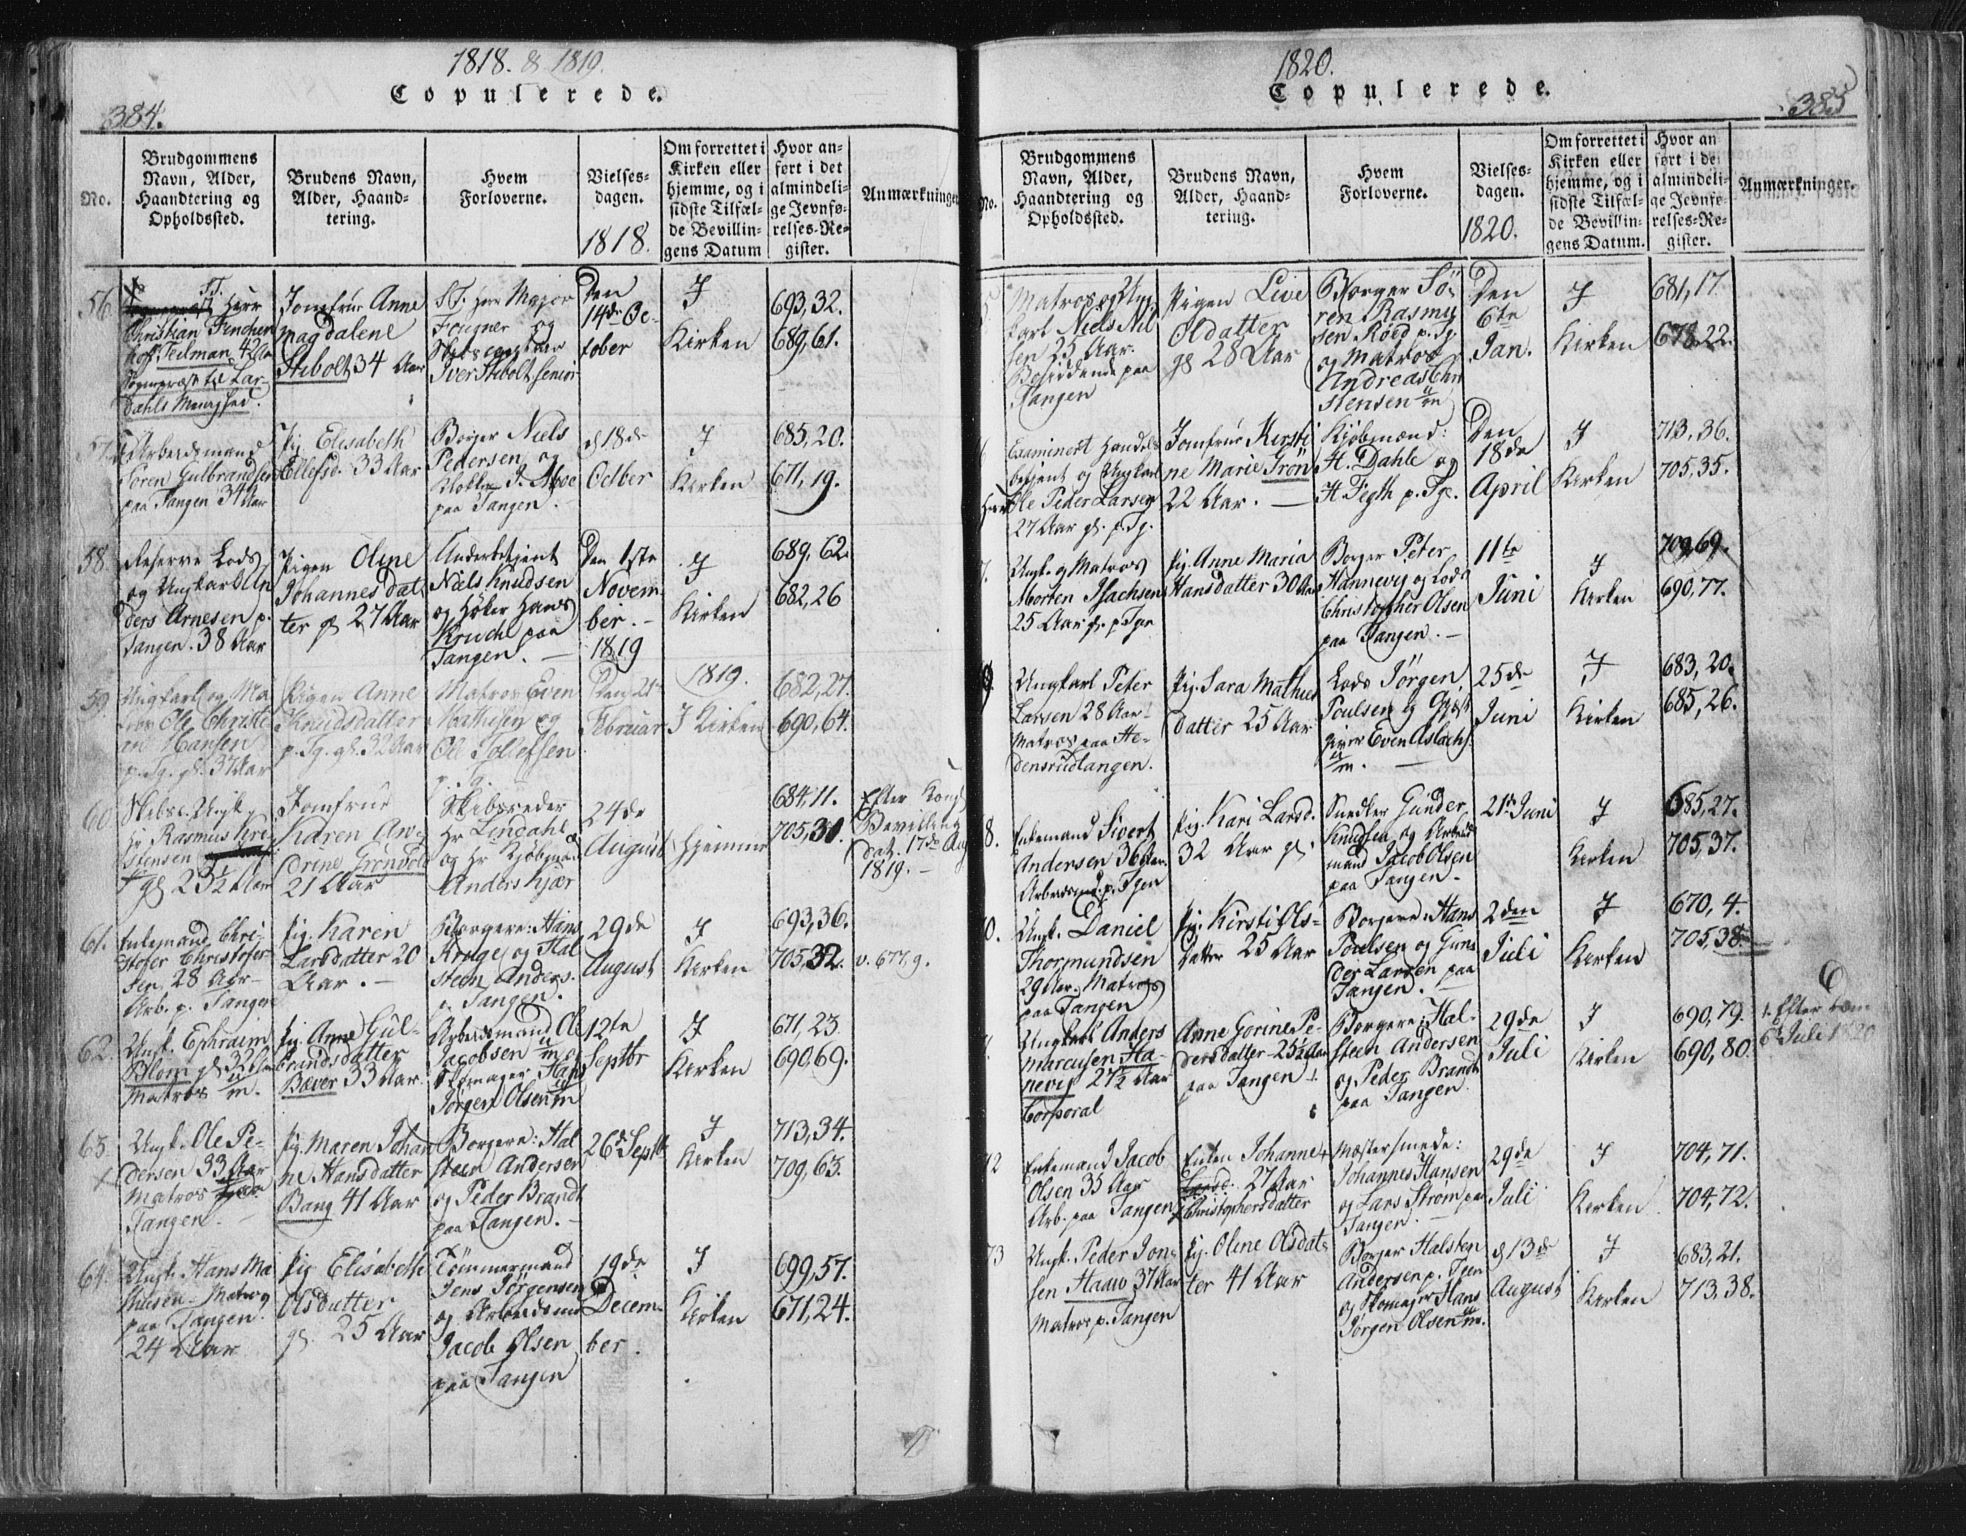 1818. & 1819.
Copulerede.
384.
No.
Brudgommens
Navn, Alder,
Haandtering og
Opholdssted.
Brudens Navn,
Alder, Haand-
tering.
Hvem
Forloverne.
Vielses-
dagen.
1818.
Om forrettet i
Kirken eller
hjemme, og i
sidste Tilfæl-
de Bevillin-
gens Datum
Hvor an-
ført i det
almindeli-
ge Jevnfø-
relses-Re-
gister.
Anmærkninger
56.
S.T.
Herr
Christian
Teilman 42 Aar
Sognepræst til Lar-
dahls Menighed.
Jomfrue Anne
Magdalene
Stibolt 34 Aar
S.T. Herr Major
og
Skibscapitain
Iver Stibolt senior
Den
14de Oc-
tober
I
Kirken
693,32.
689,61.
57.
Arbeidsmand
Søren Gulbrandsen
paa Tangen 34 Aar
Pig. Elisabeth
Ellefsd. 33 Aar
Borger Niels
Pedersen og
Klokker P. Moe
paa Tangen.
d 18de
Octber
I
Kirken
685,20.
671,19.
58.
Reserve Lods
og Ungkarl An
ders Arnesen p.
Tangen. 38 Aar
Pigen Oline
Johannesdat
ter gl. 27 Aar
Niels Knudsen
og Høker Hans
Kruch paa
Tangen. —
Den 1ste
Novem
ber. —
1819
I
Kirken
689,62.
682,26
59.
Ungkarl og Ma
tros Ole Christi
an Hansen
p. Tg. gl. 37 Aar
Pigen Anne
Knudsdatter
p. Tg. gl. 32 Aar
Matros Even
Mathisen og
Ole Tollefsen
p. Tg.
Den 21de
Februar
1819.
I Kirken
682,27.
690,64.
60.
Skibsc. Ungk.
Hr Rasmus Chri
stensen
gl 23½ Aar
Jomfrue
Karen An
drine Grønvold
21 Aar
Skibsreder
Hr Lindahl
og Hr Kjøbmd
Anders Kjær
24de
August
Hjemme
684,11.
705,31.
Efter Kongl
Bevilling
dat. 17de Aug
1819. —
61.
Enkemand Chri-
stofer Christofer-
sen, 28 Aar —
Arb. p. Tangen
Pig. Karen
Larsdatter 20
Aar. —
Borgere: Hans
Kroge, og Hal
steen Anders.
p. Tangen.
29de
August
I
Kirken
693,36.
705,32.
v. 677,9.
62.
Ungk. Ephraim
Blom gl. 32 Aar
Matros
Pig. Anne Gul-
brandsdatter
Bever 33 Aar.
Arbeidsmand Ole
Jacobsen og
Skomager Hans
Jørgen Olsen
12te
Septbr
I
Kirken
671,23.
690,69.
63.
Ungk. Ole Pe-
dersen 33 Aar
Matros
Tangen. —
Pig. Maren Johan
ne Hansdatter
Bang 41 Aar
Borgere: Hal
steen Andersen
og Peder Brandt
paa Tangen. —
26de Septbr
I
Kirken
713,34.
709,63.
64.
Ungk. Hans Ma
thisen. Matros
paa Tangen.
24 Aar
Pig Elisabeth
Olsdatter
gl. 25 Aar
Tømmermand
Jens Jørgensen
og Arbeidsmd
Jacob Olsen
paa Tangen
19de
Decem-
ber.
I
Kirken
699,57.
671,24.
1820.
Copulerede.
385
No.
Brudgommens
Navn, Alder,
Haandtering og
Opholdssted.
Brudens Navn,
Alder, Haand-
tering.
Hvem
Forloverne.
Vielses-
dagen.
1820.
Om forrettet i
Kirken eller
hjemme, og i
sidste Tilfæl-
de Bevillin-
gens Datum.
Hvor an
ført i de
almindeli-
ge Jevnfø-
relses-Re-
gister.
Anmærkninger.
Matros og Ung
karl Niels Nil
sen 25 Aar.
Besiddende paa
Tangen
Pigen Live
Oldatter
gl 28 Aar
Borger Sø-
ren Rasmu
sen Roed p. Tg.
og Matros
Andreas Chri
stensen
Den
6te
Jan.
I
Kirken
681,17.
678,22.
Examinert Handels
betjent og Ungkarl
Ole Peder Larsen
27 Aar gl. p. Tg.
Jomfrue Kersti
ne Marie Grøn
22 Aar. —
Kjøbmænd:
H. Dahle og
H. Fegth p. Tg.
Den
18de
April
I
Kirken
713,36.
705,35.
7.
Ungk. og Matros
Morten Isachsen
25 Aar gl. p. Tgn
Pig. Anne Maria
Hansdatter 30 Aar
Borger Peter
Hannevig og Lods
Christopher Olsen
paa Tangen. —
11te
Juni
I
Kirken
709,69.
690,77.
Ungkarl Peter
Larsen 28 Aar.
Matros paa He-
densrudtangen.
Pig. Sara Mathis
datter 25 Aar
Lods Jørgen
Poulsen og Gjæst
giver Even Aslachs.
25de
Juni
I
Kirken
683,20.
685,26.
8.
Enkemand Sivert
Andersen 36 Aar.
Arbeidsmd. p. Tgen
Pig. Kari Larsd.
32 Aar gl.
Snedker Gunder
Knudsen og Arbeids
mand Jacob Olsen
paa Tangen.
21de Juni
I
Kirken
685,27.
705,37.
0.
Ungk. Daniel
Thormundsen
29 Aar. Matros
paa Tangen
Pig. Kirsti Ols-
datter 25 Aar
Borgere: Hans
Poulsen og Gun-
der Larsen paa
Tangen. —
2den
Juli
I
Kirken
670,4.
705,38.
Ungkarl Anders
Marcusen Ha-
nevig 27½ Aar
Corporal
Anne Gorine Pe-
dersdatter 25½ Aar
paa Tangen
Borgere: Hal-
steen Andersen
og Peder Brandt
paa Tangen.
29de
Juli
I
Kirken
690,79.
690,80.
Efter
6te Juli 1820
72
Enkemand Jacob
Olsen 35 Aar
Arb. paa Tangen
Enken Johanne
Larsd. 27 Aar
Christophersdatter
Mæstersmede:
Johannes Hansen
og Lars Strøm pa
Tangen. —
29de
Juli
I
Kirken
704,71.
704,72.
73
Ungk. Peder Jon-
sen Haav 37 Aar
Matros p. Tangen
Pig. Oline Olsdat-
ter 41 Aar
Borger Halsten
Andersen p. Tgen
og Skomager Hans
Jørgen Olsen
d 13de
August
I
Kirken
683,21.
713,38.